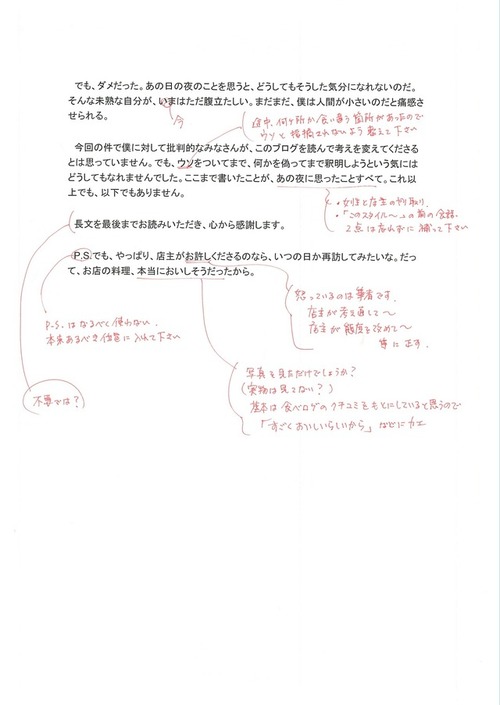 でも、ダメだった。あの日の夜のことを思うと、どうしてもそうした気分になれないのだ。
そんな未熟な自分が、いまはただ腹立たしい。まだまだ、僕は人間が小さいのだと痛感さ
せられる。
今
途中、何ヶ所か食い違う箇所があったので
ウソと指摘されないよう教えて下さい
今回の件で僕に対して批判的なみなさんが、このブログを読んで考えを変えてくださる
とは思っていません。でも、ウソをついてまで、何かを偽ってまで釈明しようという気には
どうしてもなれませんでした。ここまで書いたことが、あの夜に思ったことすべて。これ以
上でも、以下でもありません。
・女性と店主のやり取り、
・「このスタイル〜」の前の会話、
2点は忘れずに補って下さい
長文を最後までお読みいただき、心から感謝します。
P.S.でも、やっぱり、店主がお許しくださるのなら、いつの日か再訪してみたいな。だっ
て、お店の料理、本当においしそうだったから。
怒っているのは筆者です。
店主が考え直して〜
店主が態度を改めて〜
等に直す。
P.S.はなるべく使わない
本来あるべき位置に入れて下さい
不要では？
写真を見ただけでしょうか？
（実物は見てない？）
基本は食べログのクチコミをもとにしていると思うので
「すごくおいしいらしいから」などにカエ